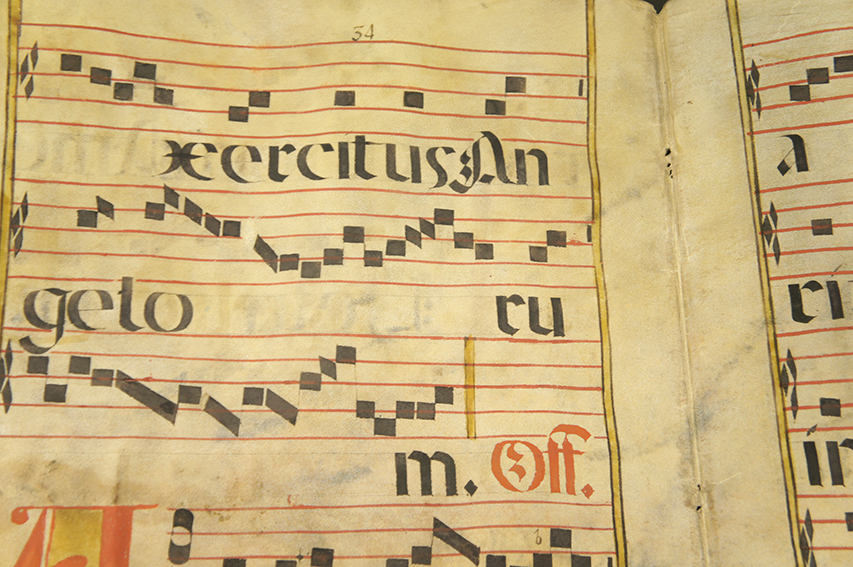 34
exercitus An
gelo ru
m. Off.
a
ri
in